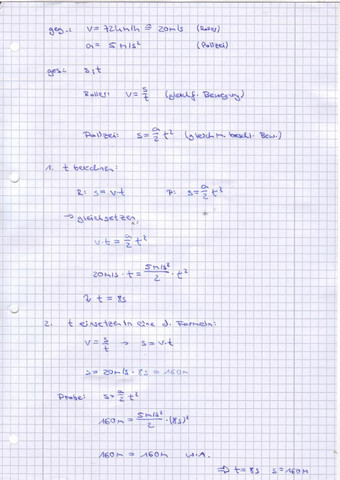 geg.: v = 72km/h ≙ 20m/s (Roller)
a = 5 m/s² (Polizei)
ges.: s, t
Roller: v = s/t (gleichf. Bewegung)
Polizei: s = a/2 t² (gleichm. beschl. Bew.)
1. t berechnen:
R: s = v·t P: s = a/2 t²
→ gleichsetzen
v·t = a/2 t²
20m/s · t = 5m/s²/2 · t²
t = 8s
2. t einsetzen in eine d. Formeln:
v = s/t → s = v·t
s = 20m/s · 8s = 160m
Probe: s = a/2 t²
160m = 5m/s²/2 · (8s)²
160m = 160m w.A.
⇒ t = 8s s = 160m